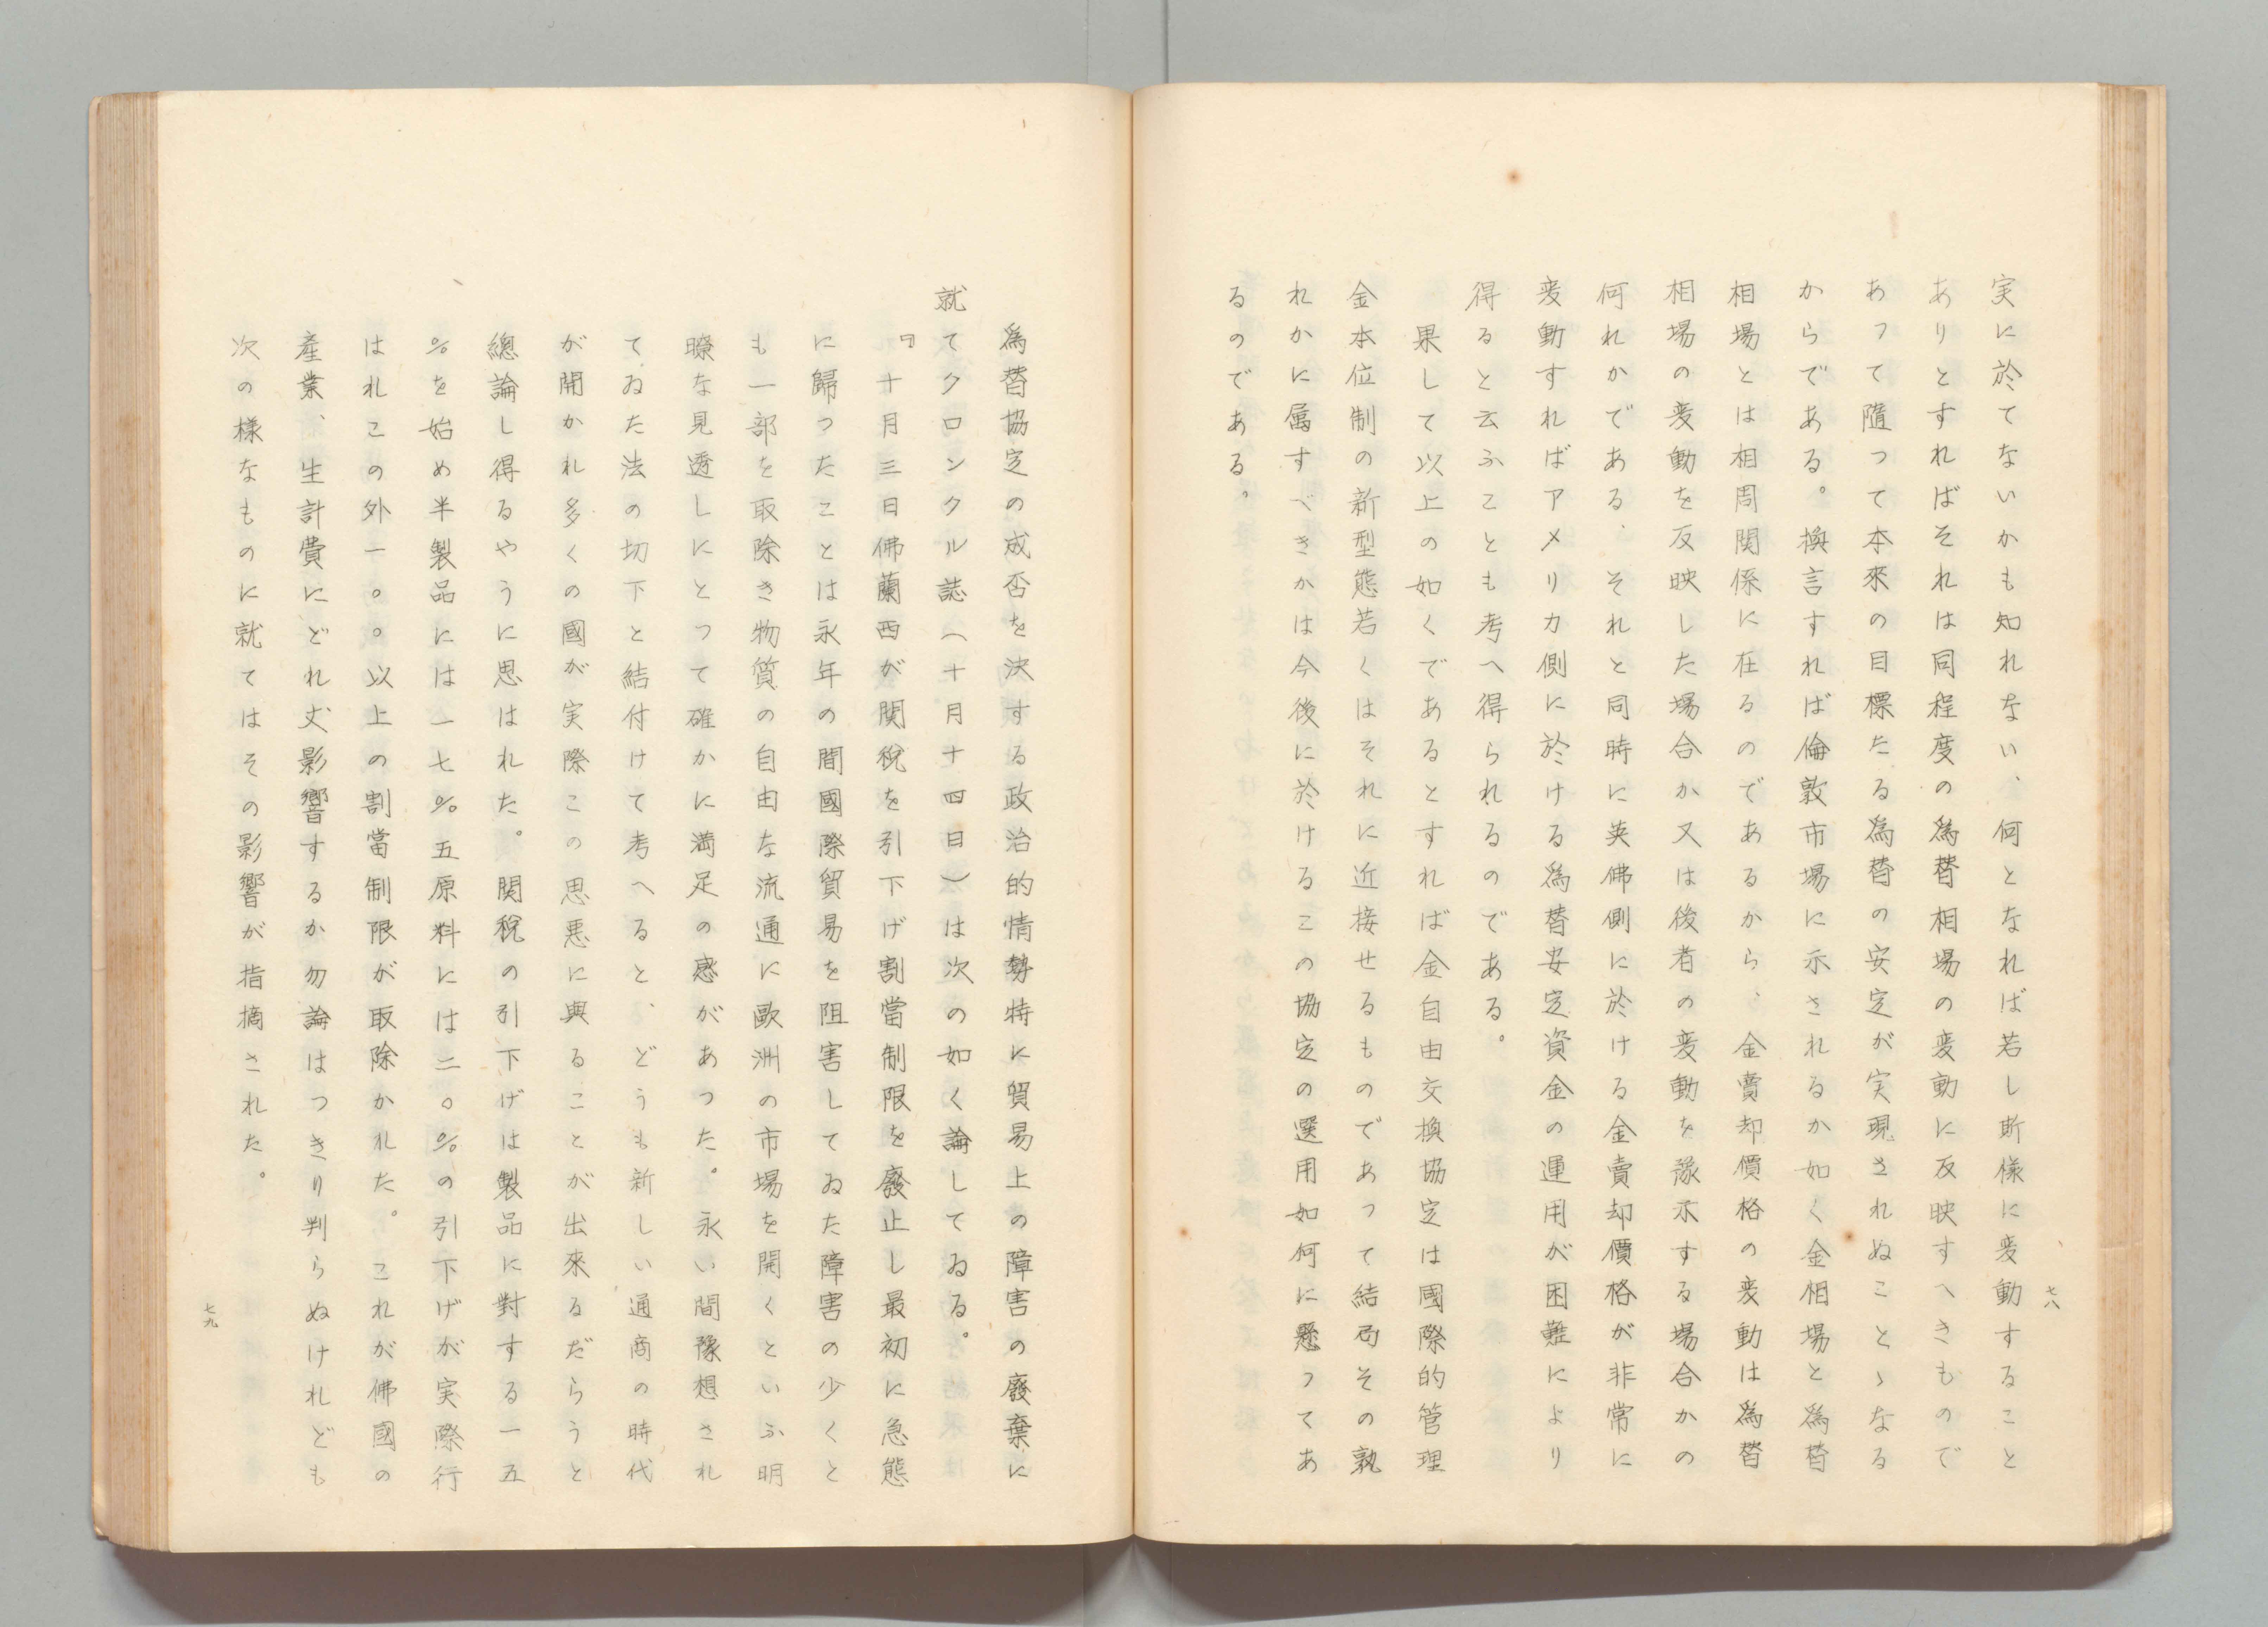 七八
実に於てないかも知れない、何となれば若し斯様に変動すること
ありとすればそれは同程度の為替相場の変動に反映すへきもので
あつて随つて本來の目標たる為替の安定が実現されぬことゝなる
からである。換言すれば倫敦市場に示されるか如く金相場と為替
相場とは相周関係に在るのであるから、金賣却價格の変動は為替
相場の変動を反映した場合か又は後者の変動を豫示する場合かの
何れかである、それと同時に英佛側に於ける金賣却價格が非常に
変動すればアメリカ側に於ける為替安定資金の運用が困難により
得ると云ふことも考へ得られるのである。
果して以上の如くであるとすれば金自由交換協定は國際的管理
金本位制の新型態若くはそれに近接せるものであつて結局その孰
れかに属すべきかは今後に於けるこの協定の運用如何に懸つてあ
るのである。
為替協定の成否を決する政治的情勢特に貿易上の障害の廢棄に
就てクロンクル誌（十月十四日）は次の如く論してゐる。
『十月三日佛蘭西が関稅を引下げ割當制限を廢止し最初に急態
に歸つたことは永年の間國際貿易を阻害してゐた障害の少くと
も一部を取除き物質の自由な流通に歐洲の市場を開くといふ明
瞭な見透しにとつて確かに満足の感があつた。永い間豫想され
てゐた法の切下と結付けて考へると、どうも新しい通商の時代
が開かれ多くの國が実際この思惠に與ることが出來るだらうと
總論し得るやうに思はれた。関稅の引下げは製品に對する一五
％を始め半製品には一七％五原料には二〇％の引下げが実際行
はれこの外一〇〇以上の割當制限が取除かれた。これが佛國の
產業、生計費にどれ丈影響するか勿論はつきり判らぬけれども
次の様なものに就てはその影響が指摘された。
七九